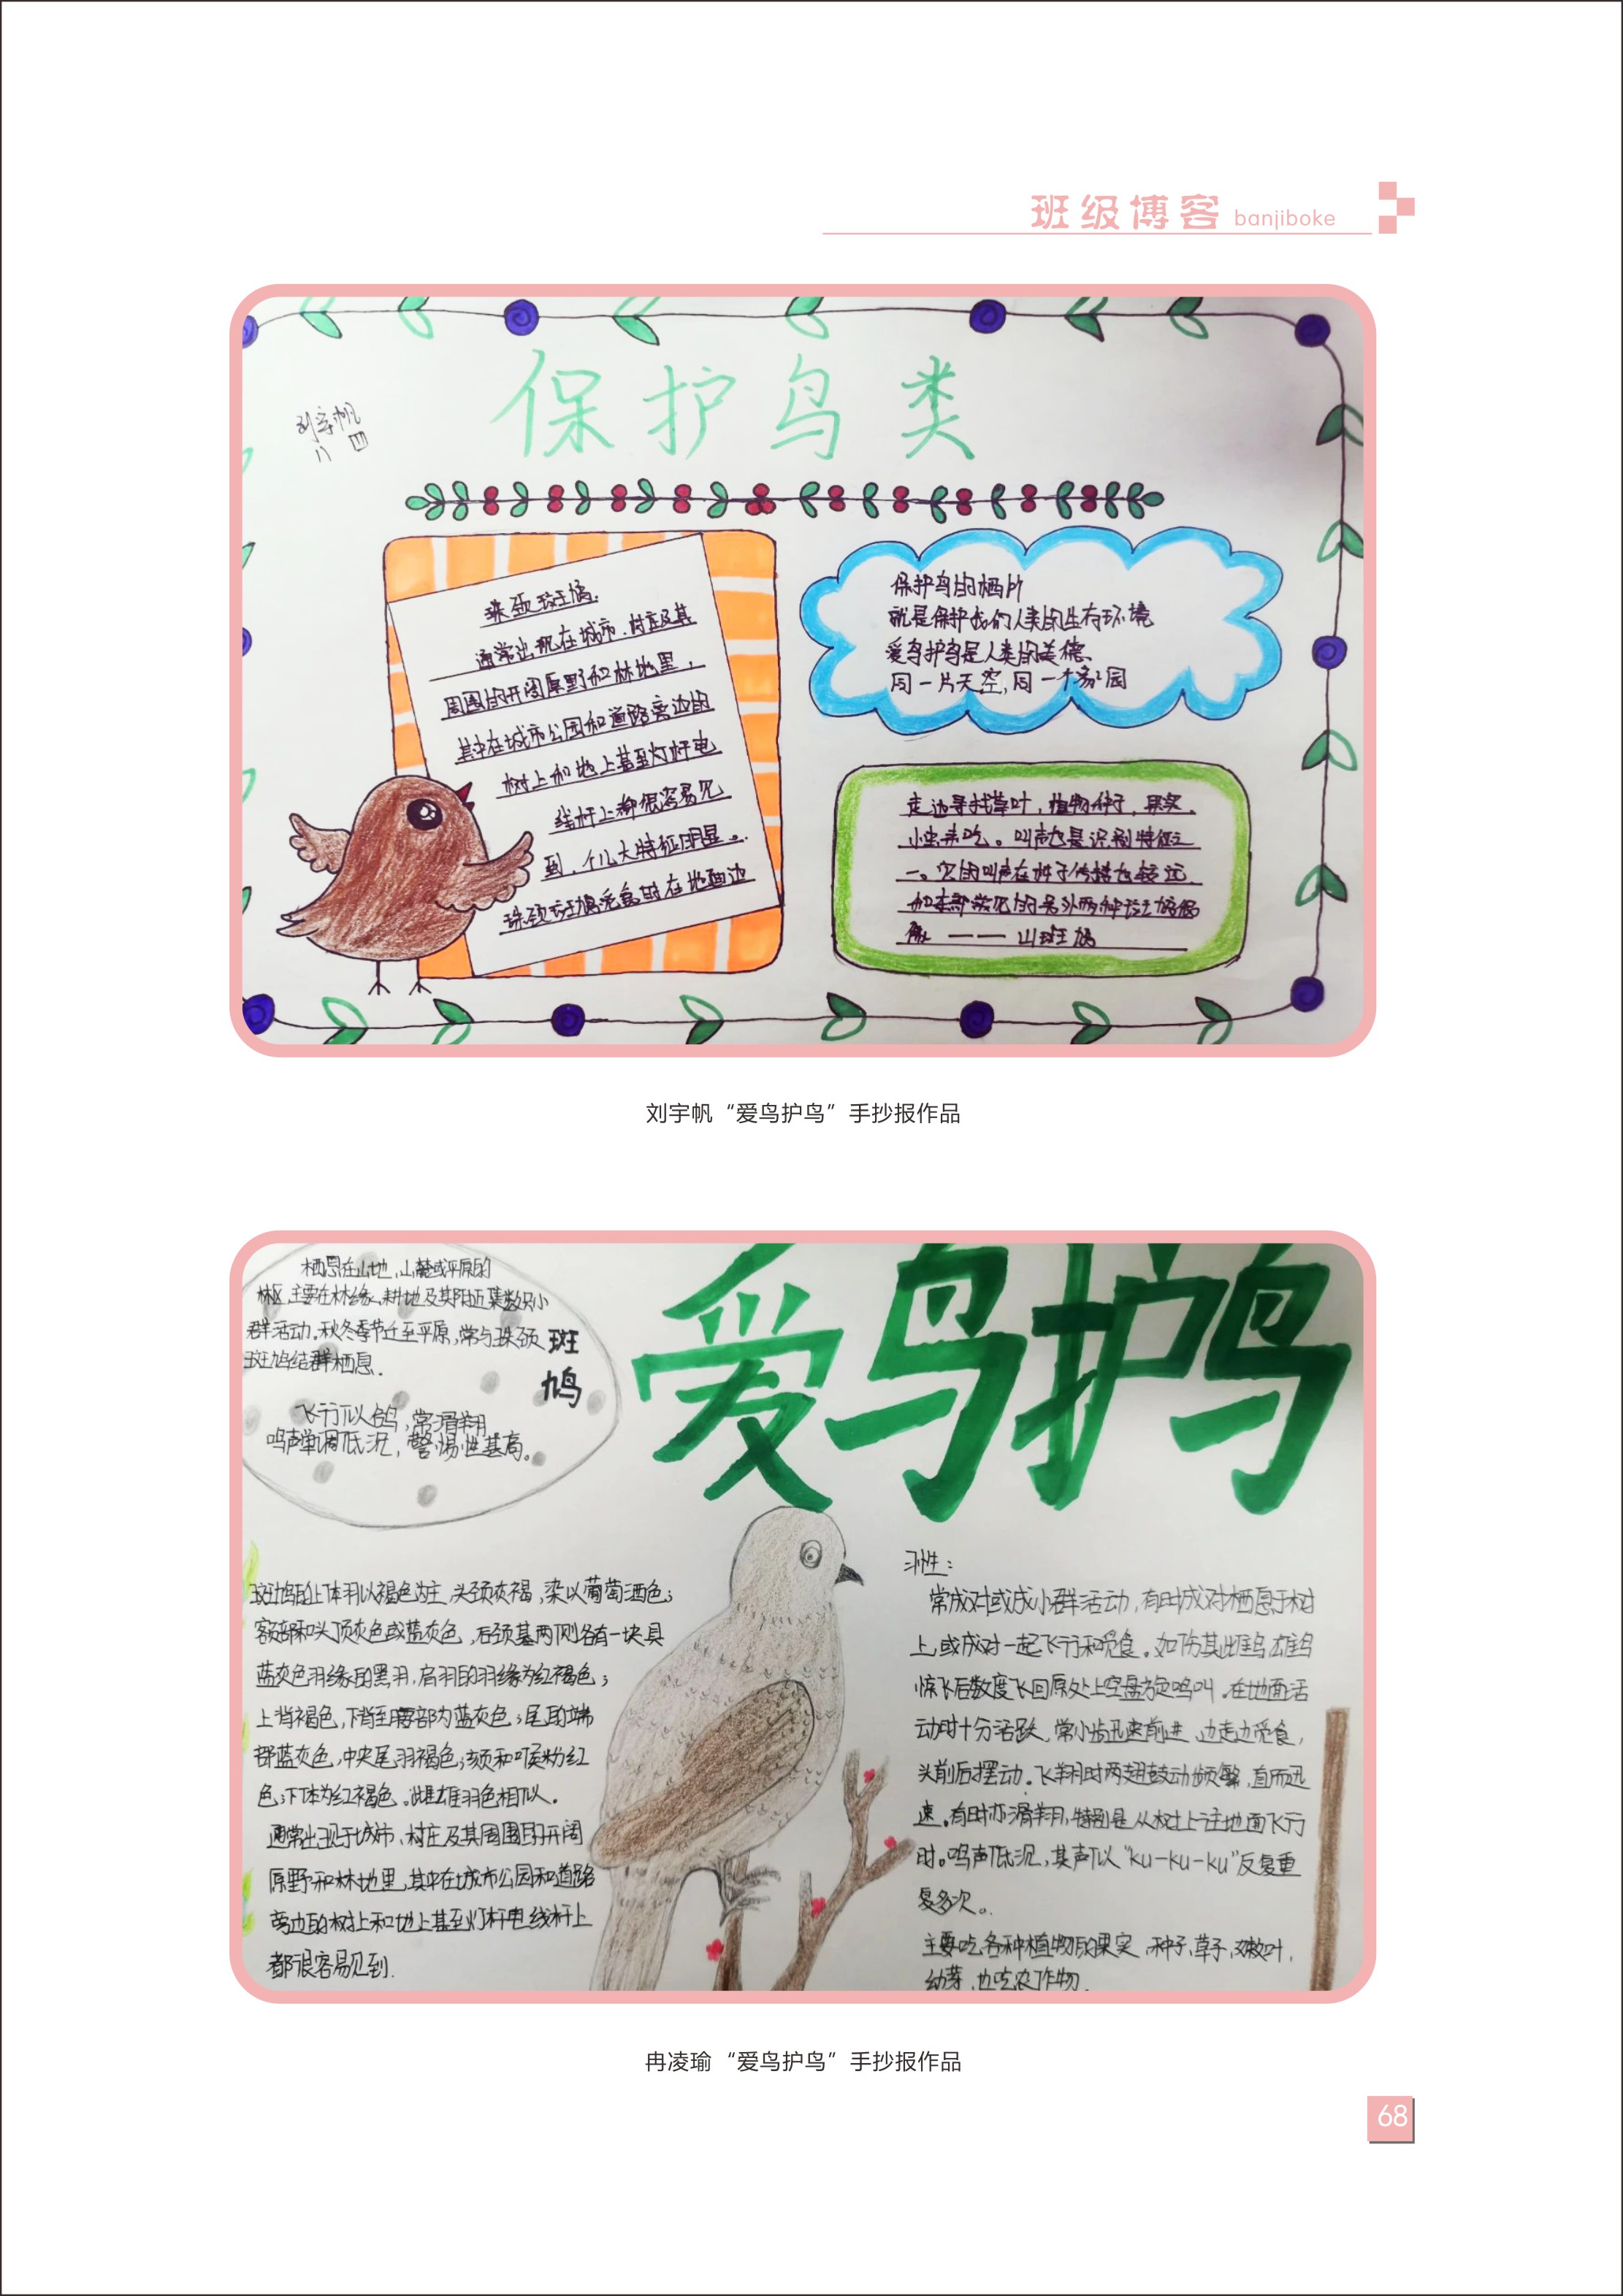 班级博客 banjiboke
保护鸟类
刘宇帆
八四
珠颈斑鸠.
通常出现在城市.村庄及其
周围的开阔原野和林地里,
其中在城市公园和道路旁边的
树上和地上甚至灯杆电
线杆上都很容易见
到.个儿大特征明显。
珠颈斑鸠觅食时在地面边
保护鸟的栖所
就是保护我们人类的生存环境
爱鸟护鸟是人类的美德、
同一片天空,同一个家园
走边寻找草叶,植物种子,果实、
小虫来吃。叫声也是识别特征之
一。它的叫声在
山斑鸠
刘宇帆“爱鸟护鸟”手抄报作品
爱鸟护鸟
栖息在山地,山麓或平原的
林区,主要在林缘、耕地及其附近集数只小
群活动.秋冬季节迁至平原,常与珠颈
斑鸠结群栖息.
斑鸠
飞行似鸽,常滑翔
鸣声单调低沉,警惕性甚高。
斑鸠的上体羽以褐色为主,头颈灰褐,染以葡萄酒色;
额部和头顶灰色或蓝灰色,后颈基两侧各有一块具
蓝灰色羽缘的黑羽,肩羽的羽缘为红褐色;
上背褐色,下背至腰部为蓝灰色;尾的端
部蓝灰色,中央尾羽褐色;颏和喉粉红
色;下体为红褐色。雌雄羽色相似.
通常出现于城市、村庄及其周围的开阔
原野和林地里,其中在城市公园和道路
旁边的树上和地上甚至灯杆电线杆上
都很容易见到.
习性:
常成对或成小群活动,有时成对栖息于树
上,或成对一起飞行和觅食。如伤其雌鸟,雄鸟
惊飞后数度飞回原处上空盘旋鸣叫.在地面活
动时十分活跃,常小步迅速前进,边走边觅食,
头前后摆动.飞翔时两翅鼓动频繁,直而迅
速.有时亦滑翔,特别是从树上往地面飞行
时。鸣声低沉,其声似“ku-ku-ku”反复重
复多次。
主要吃各种植物的果实、种子、草子、嫩叶,
幼芽,也吃农作物.
冉凌瑜“爱鸟护鸟”手抄报作品
68